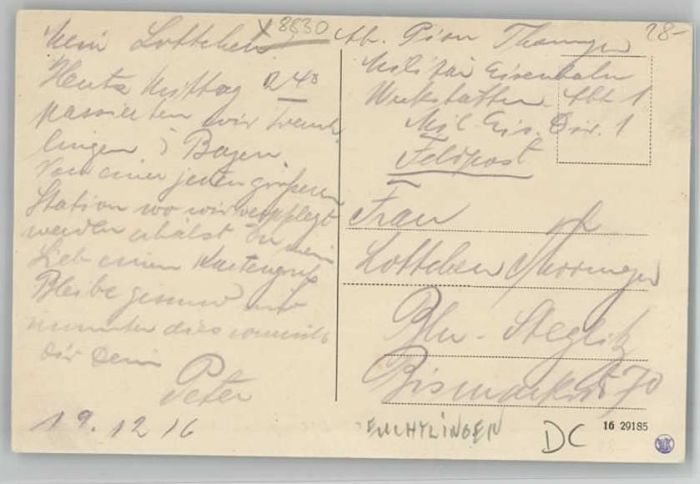 8830
28-
Mein Lottchen
Heute Mittag 12 40
passierten wir Treucht-
lingen i Bayern.
Von einer jeden größeren
Station wo wir verpflegt
werden erhälst Du mein
Lieb einen Kartengruß
Bleibe gesund und
munter dies wünscht
Dir Dein
Peter
19.12 16
Abs. Pion
Militär Eisenbahn
Werkstätten Abt 1
Mil. Eis. Dir. 1
Feldpost
Frau
Lottchen
Bln - Steglitz
Bismarckstr 70
DC
16 29185